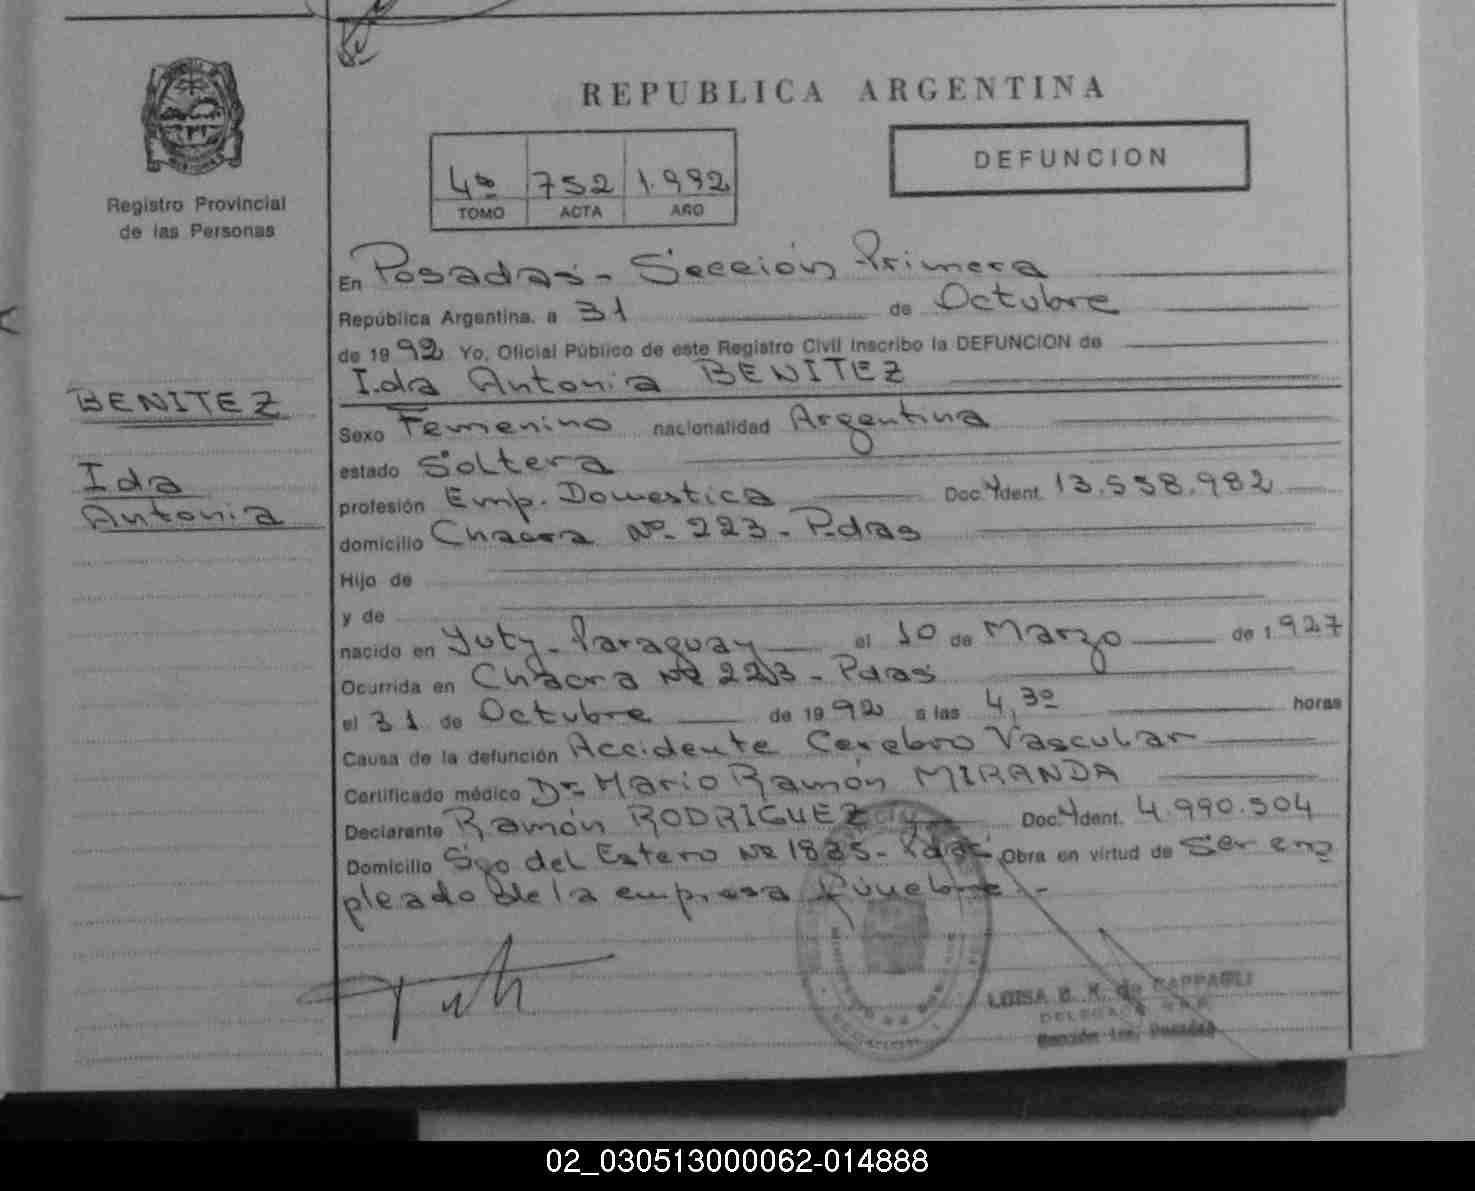 REPUBLICA ARGENTINA
DEFUNCION
4º 752 1.992
TOMO ACTA AÑO
Registro Provincial
de las Personas
BENITEZ
Ida
Antonia
En Posadas - Sección Primera
República Argentina, a 31 de Octubre
de 1992 Yo, Oficial Público de este Registro Civil inscribo la DEFUNCION de
Ida Antonia BENITEZ
Sexo Femenino nacionalidad Argentina
estado Soltera
profesión Emp. Domestica Doc. Ydent. 13.558.982
domicilio Chacra Nº 223 - Pdas
Hijo de
y de
nacido en Yuty - Paraguay el 10 de Marzo de 1.927
Ocurrida en Chacra Nº 223 - Pdas
el 31 de Octubre de 1992 a las 4,30 horas
Causa de la defunción Accidente Cerebro Vascular
Certificado médico Dr. Mario Ramón MIRANDA
Declarante Ramón RODRÍGUEZ Doc. Ydent. 4.990.504
Domicilio Sgo del Estero Nº 1835 - Pdas Obra en virtud de Ser em
pleado de la empresa fúnebre.-
LUISA B. K. de PAPPAGLI
DELEGADA
Sección 1ra. Posadas
02_030513000062-014888